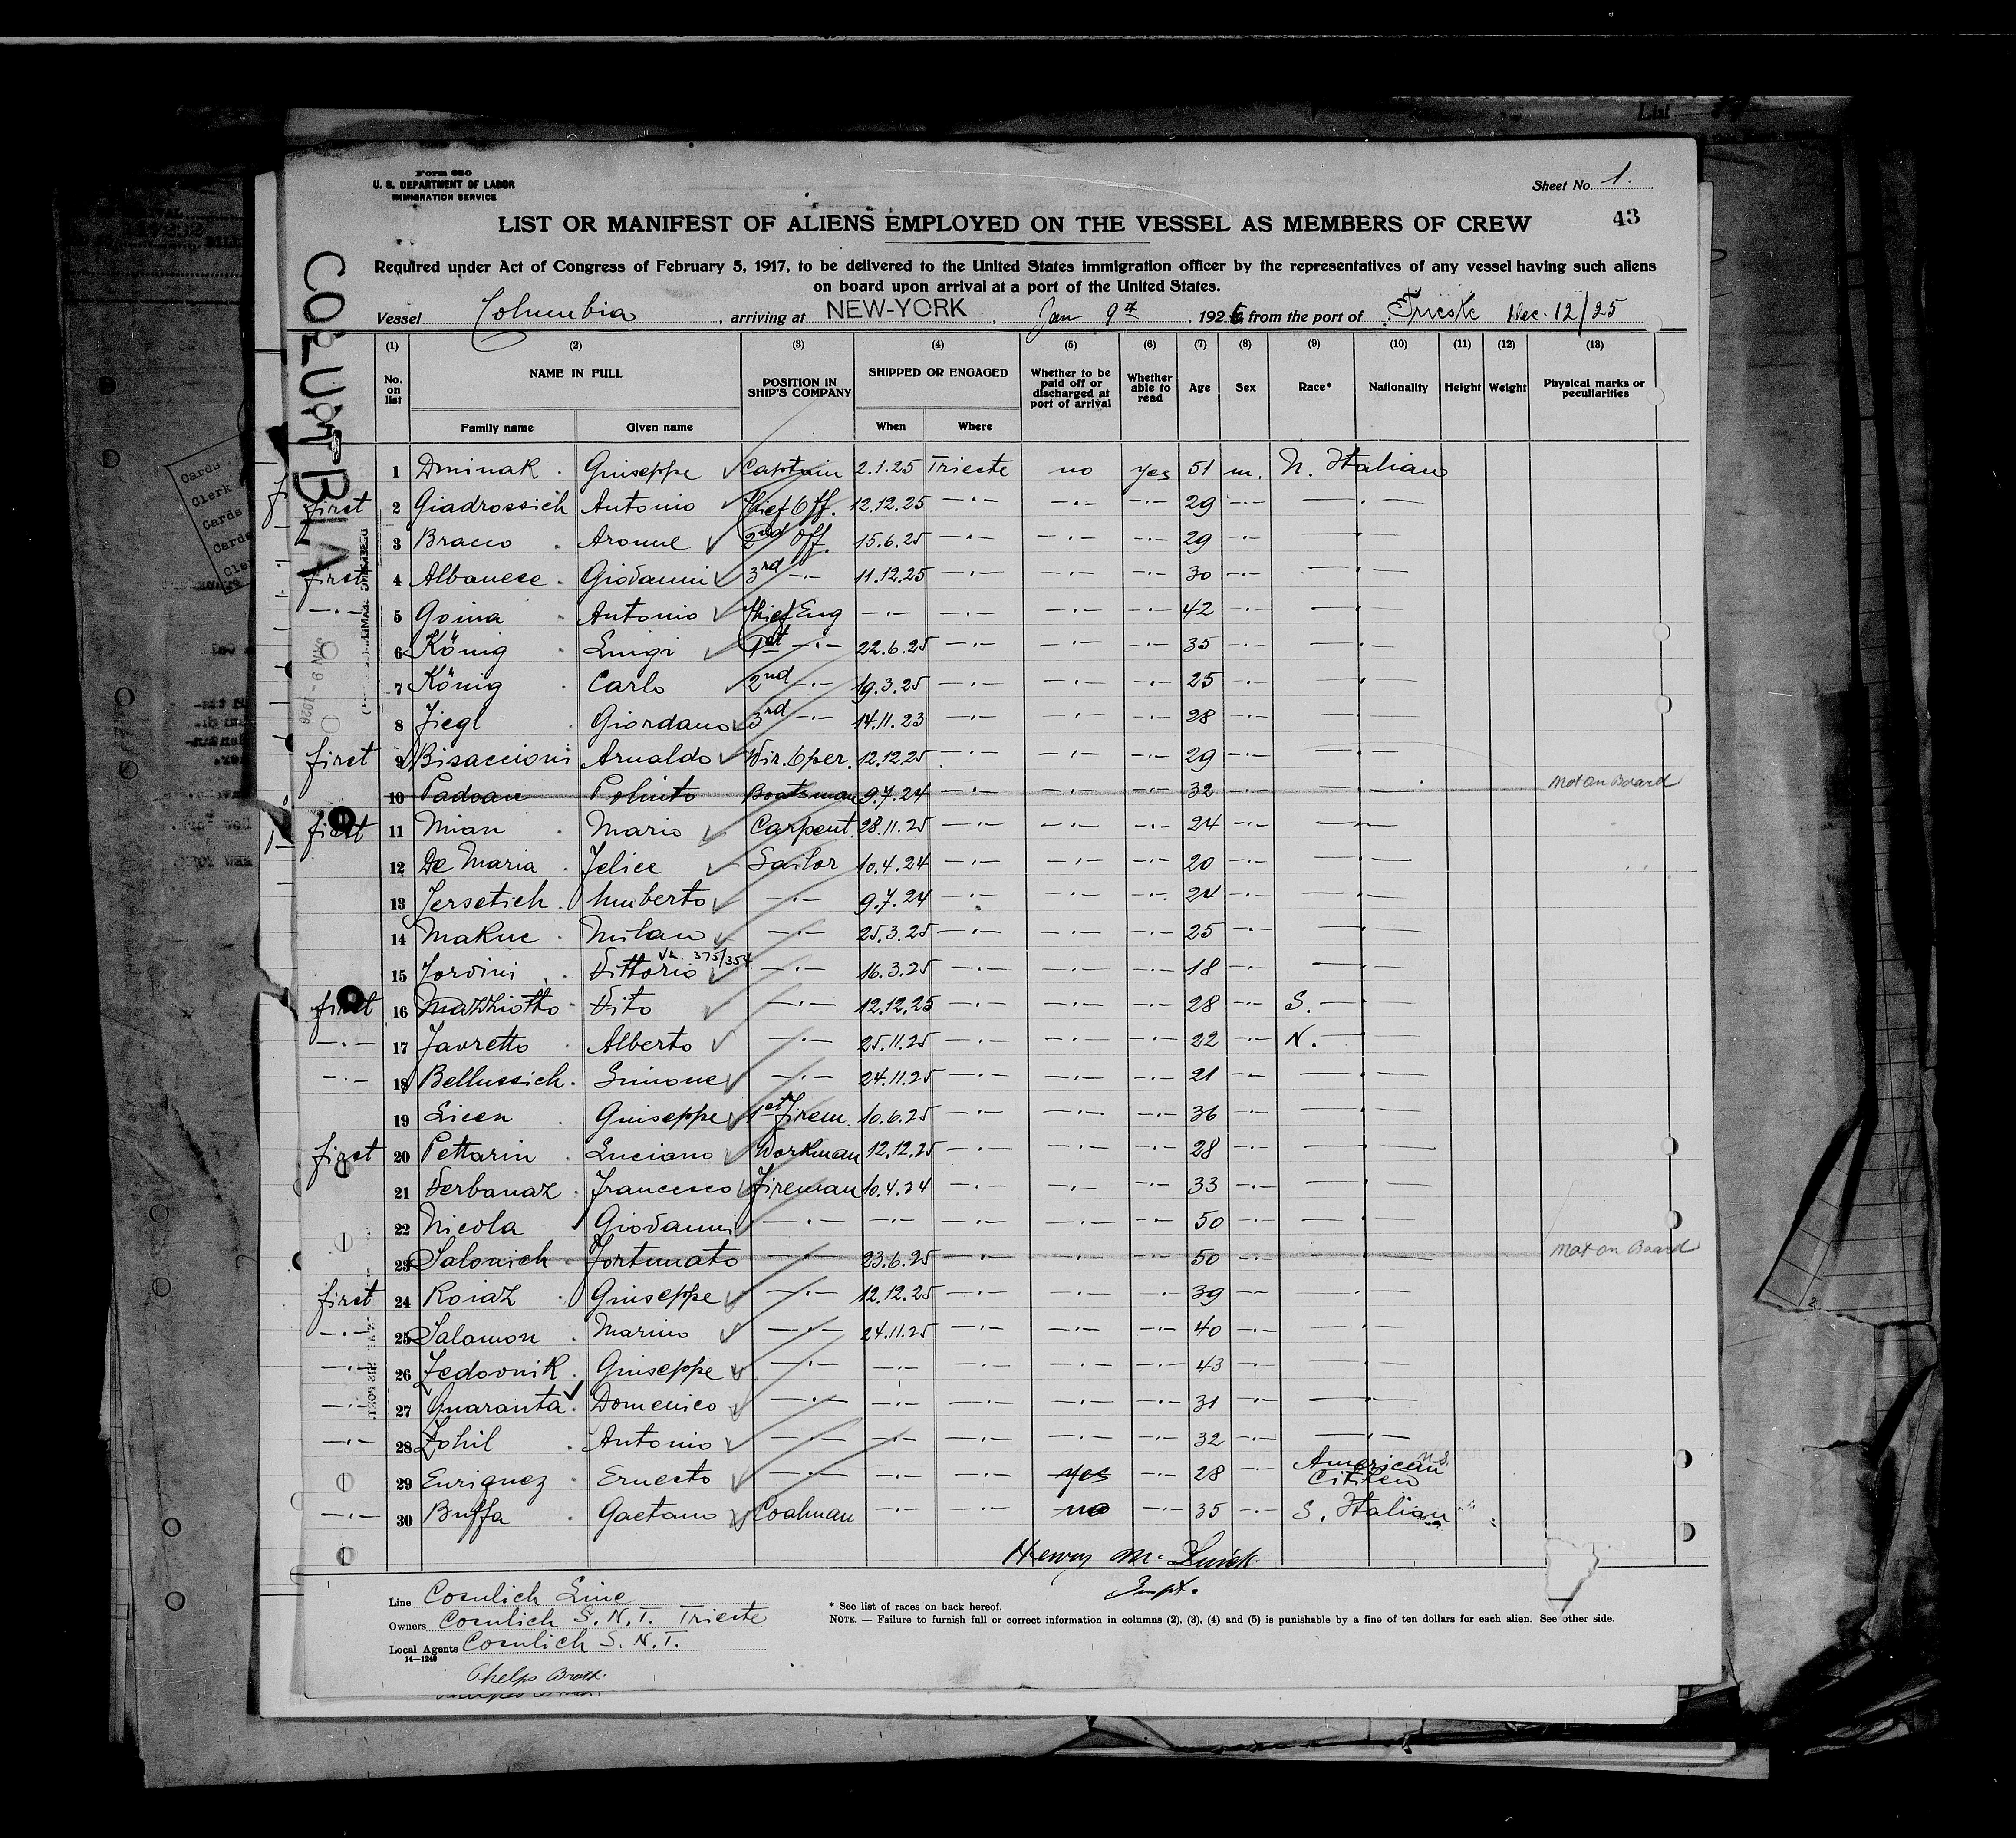 List
Form 680
U. S. DEPARTMENT OF LABOR
IMMIGRATION SERVICE
Sheet No. 1.
43
LIST OR MANIFEST OF ALIENS EMPLOYED ON THE VESSEL AS MEMBERS OF CREW
Required under Act of Congress of February 5, 1917, to be delivered to the United States immigration officer by the representatives of any vessel having such aliens
on board upon arrival at a port of the United States.
Vessel Columbia, arriving at NEW-YORK, Jan 9th, 1926, from the port of Trieste Dec. 12/25
COLUMBIA
JAN 9 - 1926
Cards
Clerk
Cards
Cards
(1) (2) (3) (4) (5) (6) (7) (8) (9) (10) (11) (12) (13)
No. on list NAME IN FULL POSITION IN SHIP'S COMPANY SHIPPED OR ENGAGED Whether to be paid off or discharged at port of arrival Whether able to read Age Sex Race* Nationality Height Weight Physical marks or peculiarities
Family name Given name When Where
1 Dminak Giuseppe Captain 2.1.25 Trieste no yes 51 m. N. Italian
first 2 Giadrossich Antonio Chief Off. 12.12.25 —·— —·— —·— 29 —·— —·—
3 Bracco Aronne 2nd Off. 15.6.25 —·— —·— —·— 29 —·— —·—
first 4 Albanese Giovanni 3rd —·— 11.12.25 —·— —·— —·— 30 —·— —·—
—·— 5 Goina Antonio Chief Eng —·— —·— —·— —·— 42 —·— —·—
6 König Luigi 1st —·— 22.6.25 —·— —·— —·— 35 —·— —·—
7 König Carlo 2nd —·— 19.3.25 —·— —·— —·— 25 —·— —·—
8 Fiegl Giordano 3rd —·— 14.11.23 —·— —·— —·— 28 —·— —·—
first 9 Bisaccioni Arnaldo Wir. Oper. 12.12.25 —·— —·— —·— 29 —·— —·—
10 Padoan Polinto Boatsman 9.7.24 —·— —·— —·— 32 —·— —·— Not on Board
first 11 Mian Mario Carpent. 28.11.25 —·— —·— —·— 24 —·— —·—
12 De Maria Felice Sailor 10.4.24 —·— —·— —·— 20 —·— —·—
13 Jersetich Umberto —·— 9.7.24 —·— —·— —·— 24 —·— —·—
14 Makuc Milan —·— 25.3.25 —·— —·— —·— 25 —·— —·—
375/354
15 Jorvini Vittorio —·— 16.3.25 —·— —·— —·— 18 —·— —·—
first 16 Mazziotto Vito —·— 12.12.25 —·— —·— —·— 28 —·— S. —·—
—·— 17 Favretto Alberto —·— 25.11.25 —·— —·— —·— 22 —·— N. —·—
—·— 18 Bellussich Simone —·— 24.11.25 —·— —·— —·— 21 —·— —·—
19 Licen Giuseppe 1st Firem. 10.6.25 —·— —·— —·— 36 —·— —·—
first 20 Pettarin Luciano Workman 12.12.25 —·— —·— —·— 28 —·— —·—
21 Verbanaz Francesco Fireman 10.4.24 —·— —·— —·— 33 —·— —·—
22 Nicola Giovanni —·— —·— —·— —·— —·— 50 —·— —·—
23 Salonich Fortunato —·— 23.6.25 —·— —·— —·— 50 —·— —·— Not on Board
first 24 Roiaz Giuseppe —·— 12.12.25 —·— —·— —·— 39 —·— —·—
—·— 25 Salamon Marino —·— 24.11.25 —·— —·— —·— 40 —·— —·—
—·— 26 Fedovnik Giuseppe —·— —·— —·— —·— —·— 43 —·— —·—
—·— 27 Quaranta Domenico —·— —·— —·— —·— —·— 31 —·— —·—
—·— 28 Zohil Antonio —·— —·— —·— —·— —·— 32 —·— —·—
29 Enriquez Ernesto —·— —·— —·— yes —·— 28 —·— American Citizen U.S.
—·— 30 Buffa Gaetano Coalman —·— —·— no —·— 35 —·— S. Italian
Henry Mc
Inspt.
Line Cosulich Line
Owners Cosulich S. N. T. Trieste
Local Agents Cosulich S. N. T.
14—1240
Phelps Broth.
* See list of races on back hereof.
NOTE. — Failure to furnish full or correct information in columns (2), (3), (4) and (5) is punishable by a fine of ten dollars for each alien. See other side.